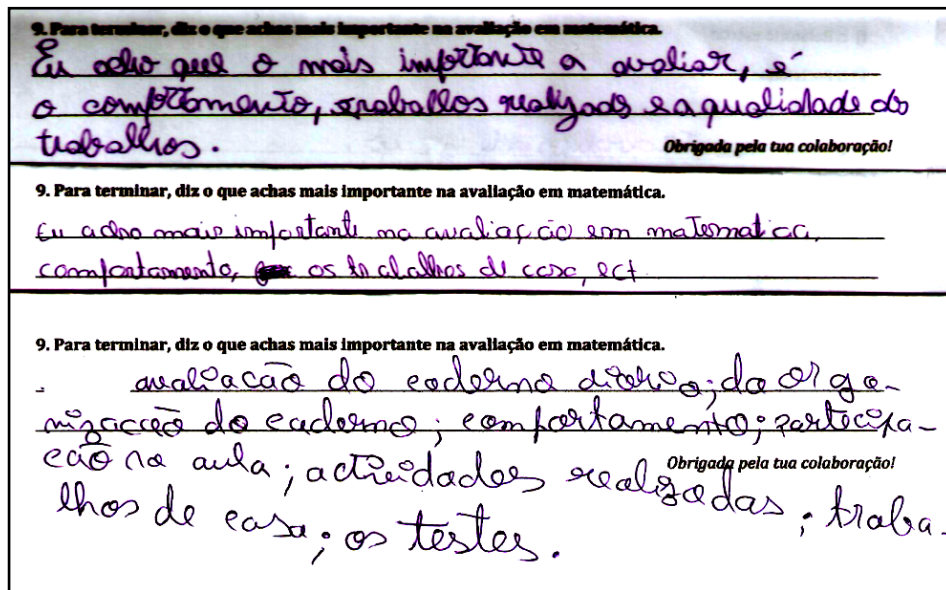 9. Para terminar, diz o que achas mais importante na avaliação em matemática.
Eu acho que o mais importante a avaliar, é
o comportamento, trabalhos realizados e a qualidade do
trabalhos.
Obrigada pela tua colaboração!
9. Para terminar, diz o que achas mais importante na avaliação em matemática.
Eu acho mais importante na avaliação em matematica,
comportamento, os trabalhos de casa, ect
9. Para terminar, diz o que achas mais importante na avaliação em matemática.
avaliacão do caderno diário; da orga-
nizaccão do caderno; comportamento; participa-
cão na aula; actividades realizadas; traba-
Obrigada pela tua colaboração!
lhos de casa; os testes.